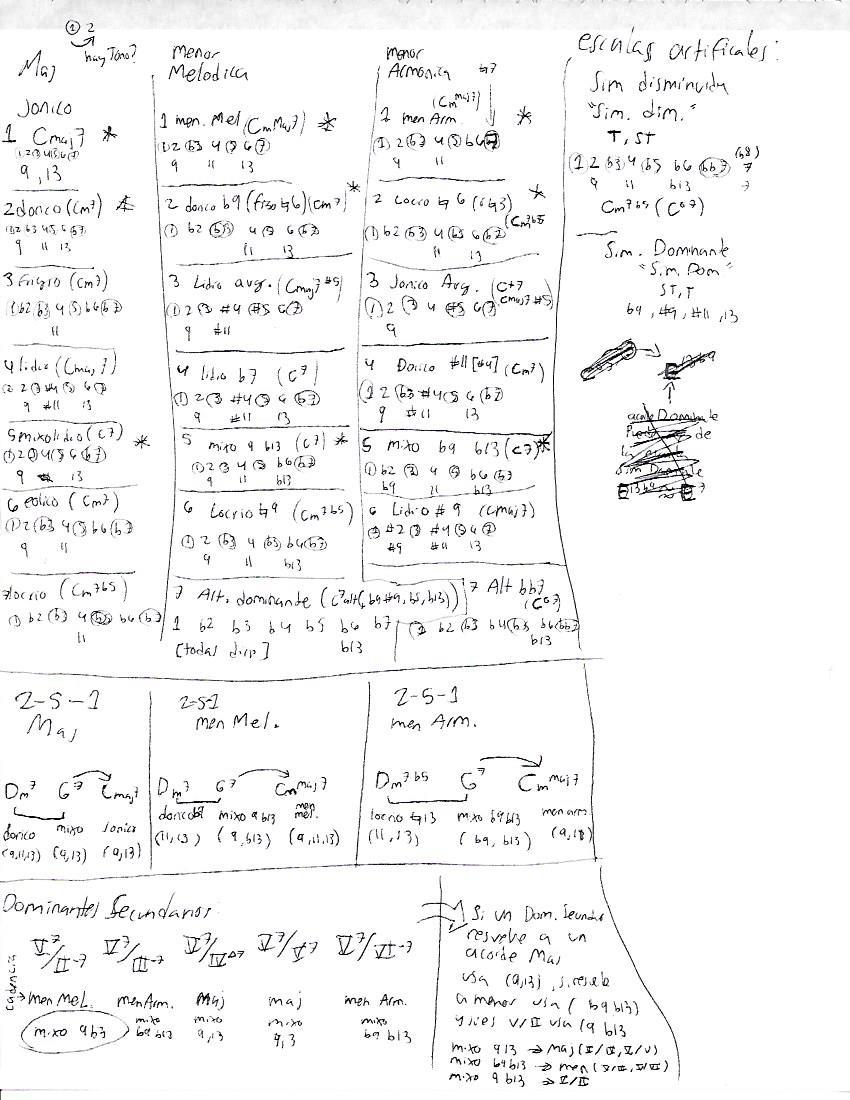 ① 2
hay Tono?
Maj
Jonico
1 Cmaj7 *
(1) 2 (3) 4 (5) 6 (7)
9, 13
2 dorico (Cm7) *
(1) 2 b3 4 5 6 b7
9 11 13
3 Frigio (Cm7)
(1) b2 (b3) 4 (5) b6 (b7)
11
4 lidio (Cmaj7)
(1) 2 (3) #4 (5) 6 (7)
9 #11 13
5 mixolidio (C7) *
(1) 2 (3) 4 (5) 6 (b7)
9 13
6 eolico (Cm7)
(1) 2 (b3) 4 (5) b6 (b7)
9 11
7 locrio (Cm7b5)
(1) b2 (b3) 4 (b5) b6 (b7)
11
menor
Melodica
1 men. Mel (CmMaj7) *
(1) 2 (b3) 4 (5) 6 (7)
9 11 13
2 dorico b9 (frigio ♮6) (Cm7) *
(1) b2 (b3) 4 (5) 6 (b7)
11 13
3 Lidio aug. (Cmaj7#5)
(1) 2 (3) #4 (#5) 6 (7)
9 #11
4 lidio b7 (C7)
(1) 2 (3) #4 (5) 6 (b7)
9 #11 13
5 mixo 9 b13 (C7) *
(1) 2 (3) 4 (5) b6 (b7)
9 11 b13
6 Locrio ♮9 (Cm7b5)
(1) 2 (b3) 4 (b5) b6 (b7)
9 11 b13
7 Alt. dominante (C7alt (b9 #9, b5, b13))
1 b2 b3 b4 b5 b6 b7
[todas disp] b13
menor
Armonica ♮7
(Cmmaj7)
1 men Arm. *
(1) 2 (b3) 4 (5) b6 (7)
9 11
2 Locrio ♮6 (♮13) *
(1) b2 (b3) 4 (b5) 6 (b7) (Cm7b5)
11 13
3 Jonico Aug. (C+7
(1) 2 (3) 4 (#5) 6 (7) Cmaj7#5)
9
4 Dorico #11 [#4] (Cm7)
(1) 2 (b3) #4 (5) 6 (b7)
9 #11 13
5 mixo b9 b13 (C7) *
(1) b2 (3) 4 (5) b6 (b7)
b9 11 b13
6 Lidio #9 (Cmaj7)
(1) #2 (3) #4 (5) 6 (7)
#9 #11 13
7 Alt bb7
(Co7)
(1) b2 (b3) b4 (b5) b6 (bb7)
b13
escalas artificales:
Sim disminuida
"Sim. dim."
T, ST
(1) 2 b3 4 b5 b6 (bb7) 7 (b8)
9 11 b13 7
Cm7b5 (Co7)
Sim. Dominante
"Sim. Dom"
ST, T
b9, #9, #11, 13
2-5-1
Maj
Dm7 G7 Cmaj7
dorico mixo Jonico
(9,11,13) (9,13) (9,13)
2-5-1
men Mel.
Dm7 G7 Cmmaj7
dorico b9 mixo 9 b13 men mel.
(11,13) (9,b13) (9,11,13)
2-5-1
men Arm.
Dm7b5 G7 Cmmaj7
locrio ♮13 mixo b9 b13 men arm.
(11,13) (b9, b13) (9,11)
Dominantes Secundarios:
V7/II-7 V7/III-7 V7/IVΔ7 V7/V7 V7/VI-7
cadencia
→ men Mel. men Arm. Maj maj men Arm.
mixo 9 b13 mixo b9 b13 9,13 mixo 9,13 mixo b9 b13
Si un Dom. Secundar
resuelve a un
acorde Maj
usa (9,13), si resuelve
a menor usa (b9 b13)
y si es V/II usa (9 b13
mixo 9 13 → Maj (V/IV, V/V)
mixo b9 b13 → men (V/III, V/VI)
mixo 9 b13 → V/II